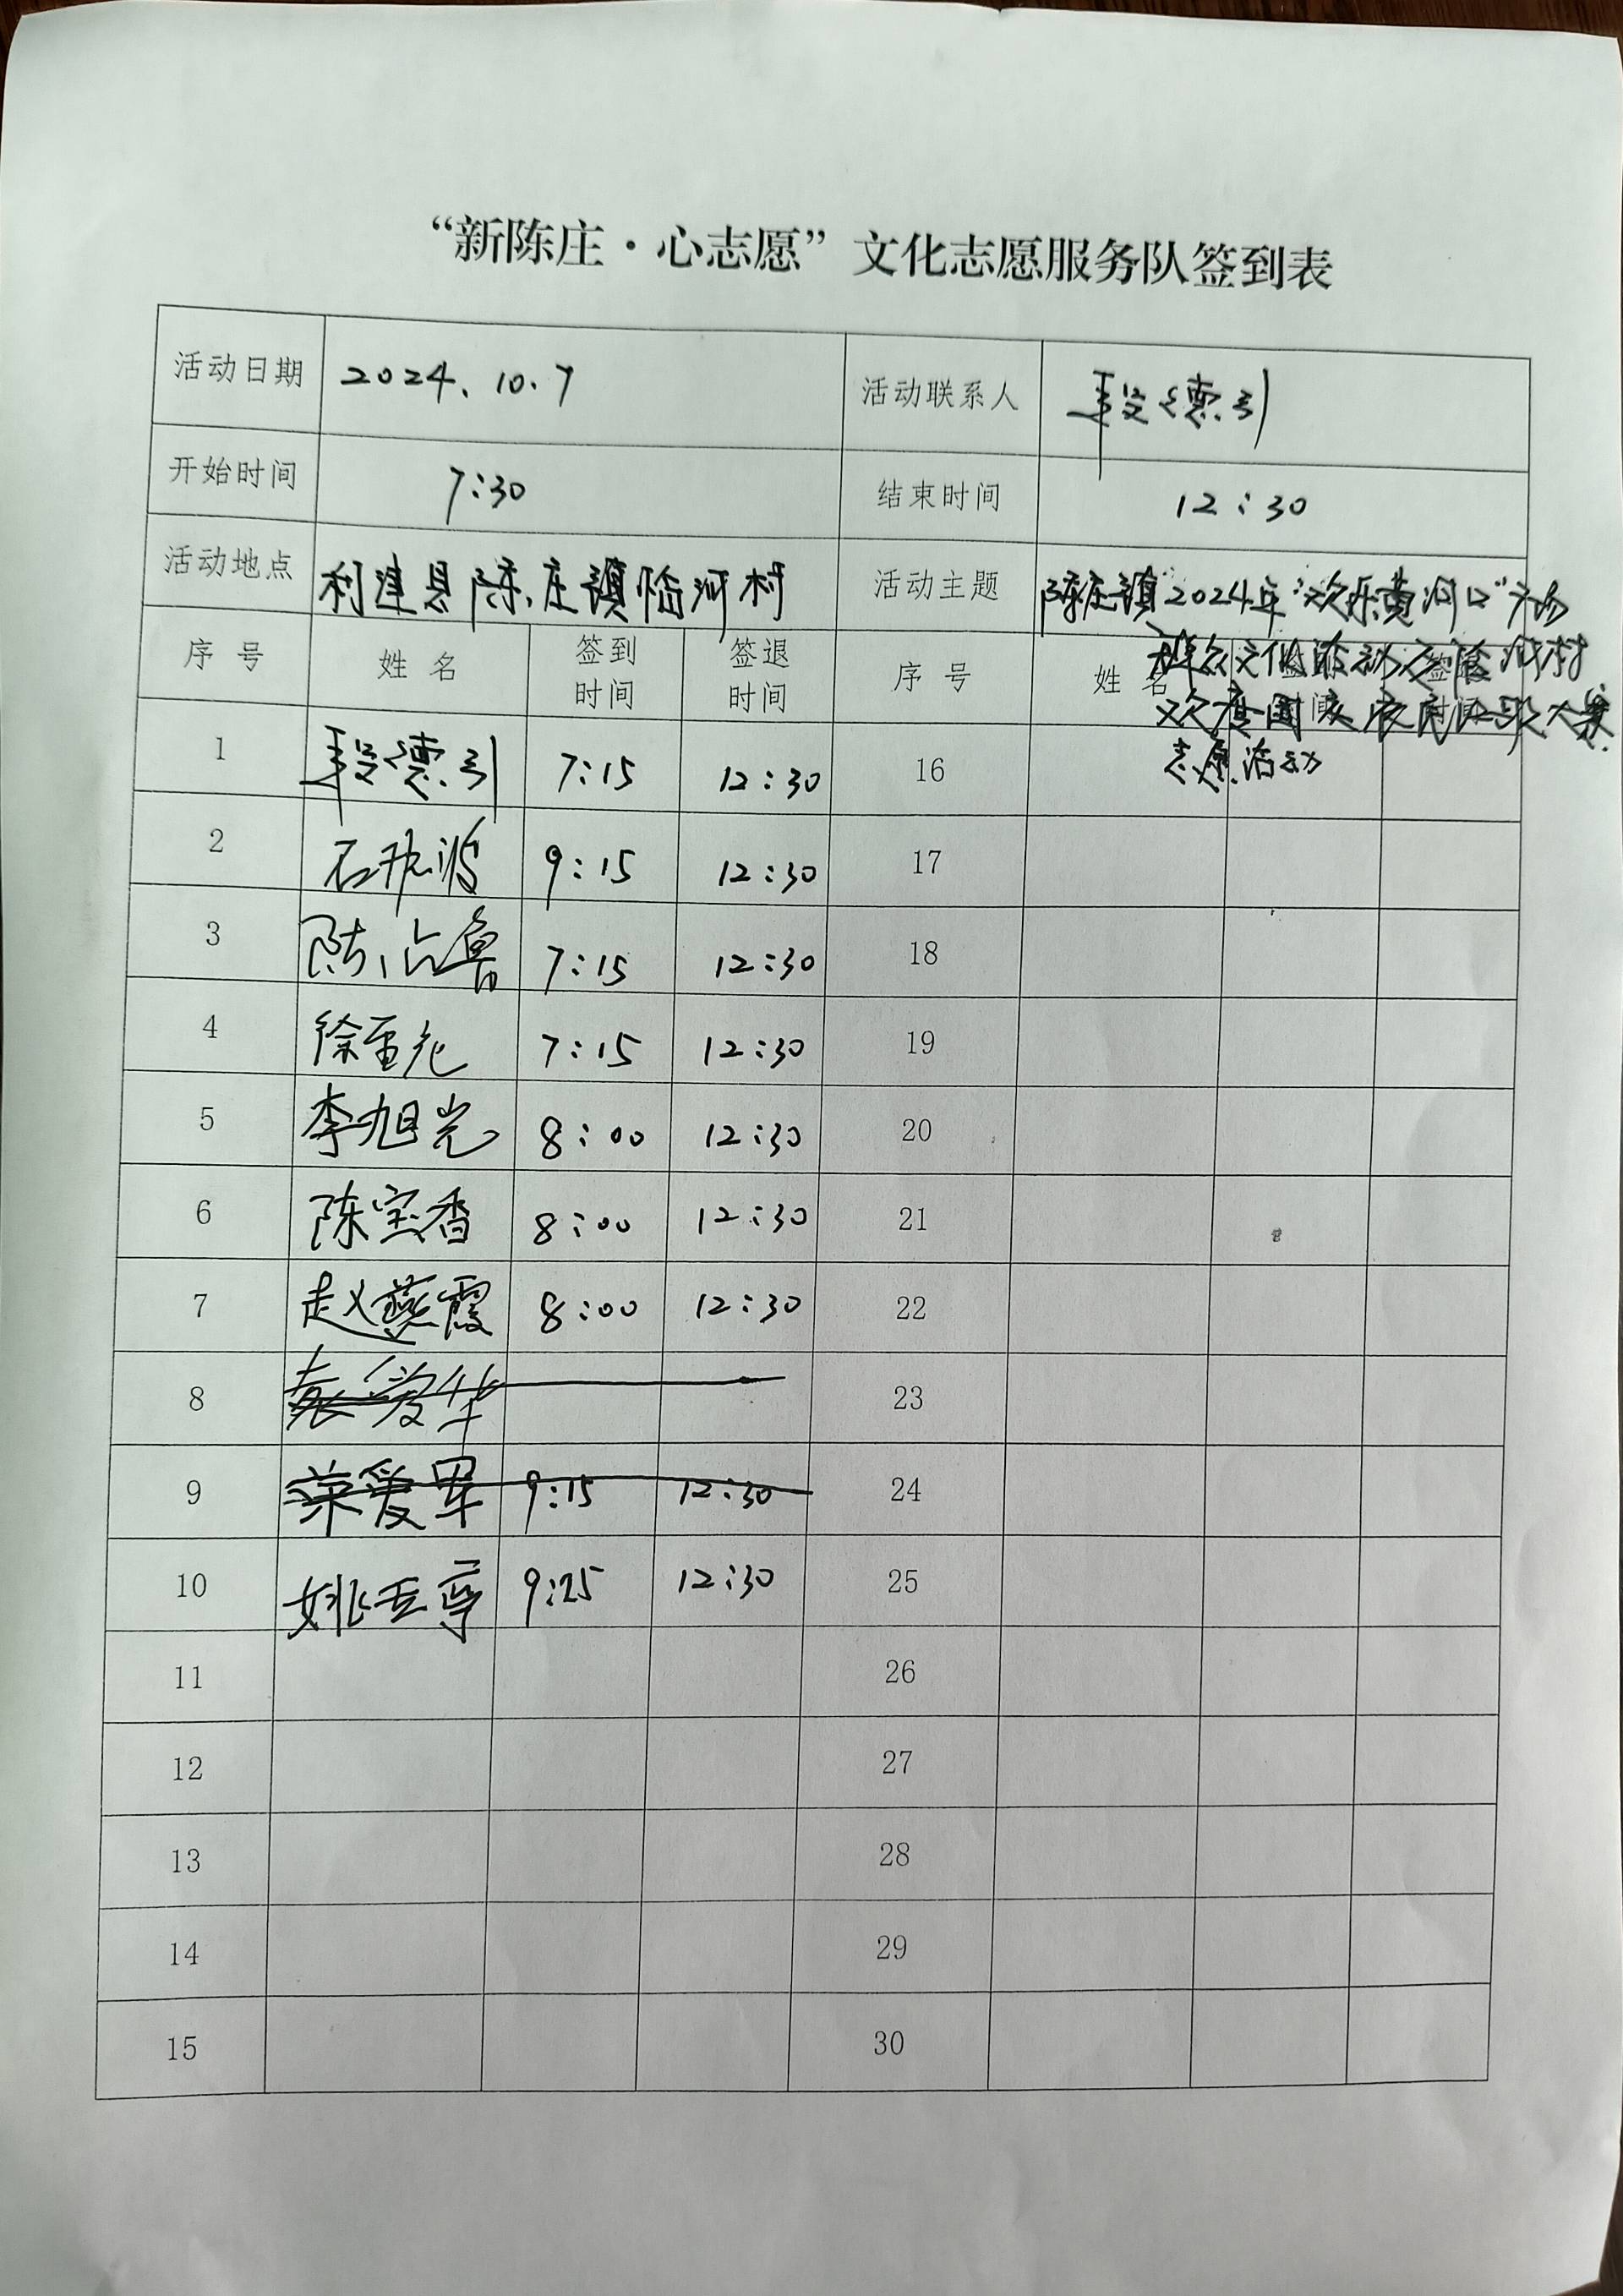 “新陈庄·心志愿”文化志愿服务队签到表
活动日期 2024.10.7 活动联系人 段德引
开始时间 7:30 结束时间 12:30
活动地点 利津县陈庄镇临河村 活动主题 陈庄镇2024年“欢乐黄河口”广场
群众文化活动及临河村
欢度国庆
志愿活动
序号 姓名 签到时间 签退时间 序号 姓名 时间 时间
1 段德引 7:15 12:30 16
2 9:15 12:30 17
3 7:15 12:30 18
4 7:15 12:30 19
5 李旭光 8:00 12:30 20
6 陈宝香 8:00 12:30 21
7 赵燕霞 8:00 12:30 22
8 袁爱华 23
9 荣爱军 9:15 12:30 24
10 9:25 12:30 25
11 26
12 27
13 28
14 29
15 30